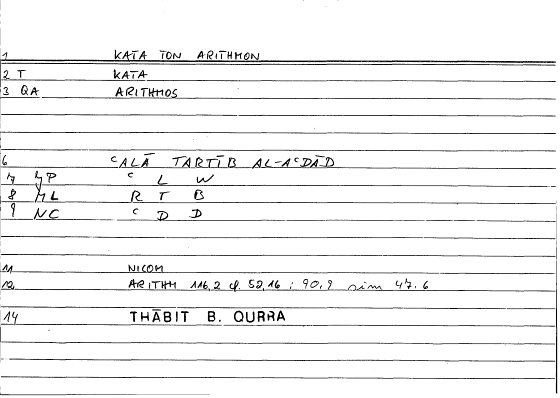 1 KATA TON ARITHMON
2 T KATA
3 QA ARITHMOS
6 ʿALĀ TARTĪB AL-AʿDĀD
7 YP ʿ L W
8 ML R T B
9 NC ʿ D D
11 NICOM
12 ARITHM 116,2 cf. 52,16 ; 90,9 sim 47.6
14 THĀBIT B. QURRA